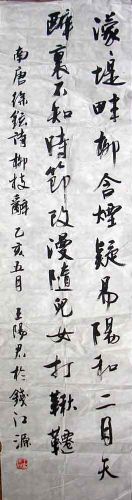 濛濛堤畔柳含煙疑是陽和二月天
醉裏不知時節改漫隨兒女打鞦韆
南唐徐鉉詩柳枝辭乙亥五月王陽君於錢江源